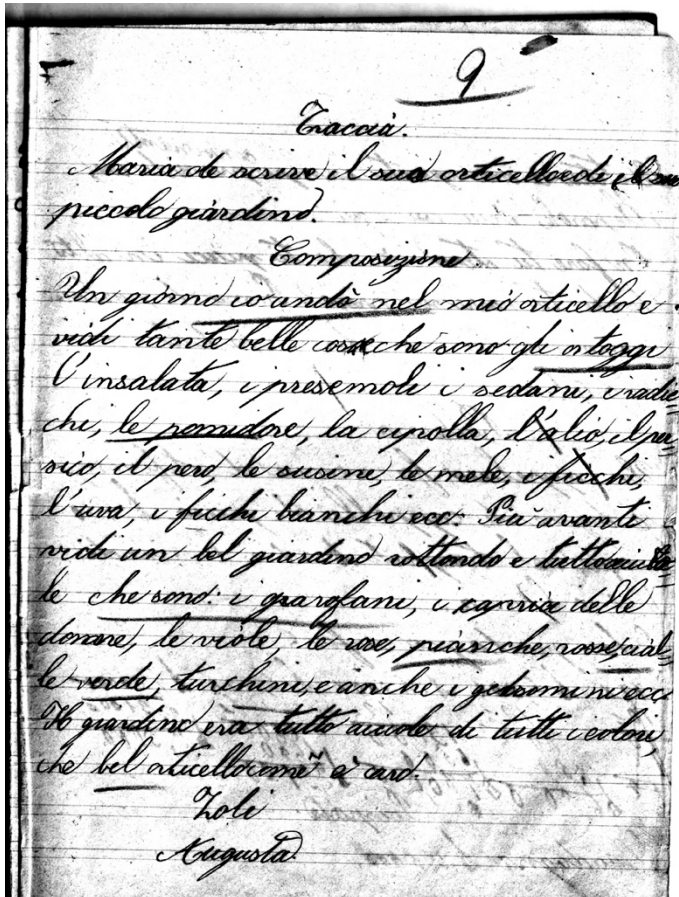 9
Traccia.
Maria de scrive il suo orticello e di il suo
piccolo giardino.
Composizione
Un giorno io andò nel mio orticello e
vidi tante belle cose che sono gli ortoggi
l'insalata, i presemoli i sedani, i radic=
chi, le pomidore, la cipolla, l'alio, il per=
sico, il pero, le susine, le mele, i ficchi,
l'uva, i ficchi bianchi ecc. Più avanti
vidi un bel giardino rottondo e tutto
le che sono: i garofani, i capricci delle
donne, le viole, le rose, pianche, rosse, cial=
le verde, turchini, e anche i gelsomini ecc
Il giardino era tutto aiuole di tutti i colori,
che bel orticello come è caro.
Zoli
Augusta